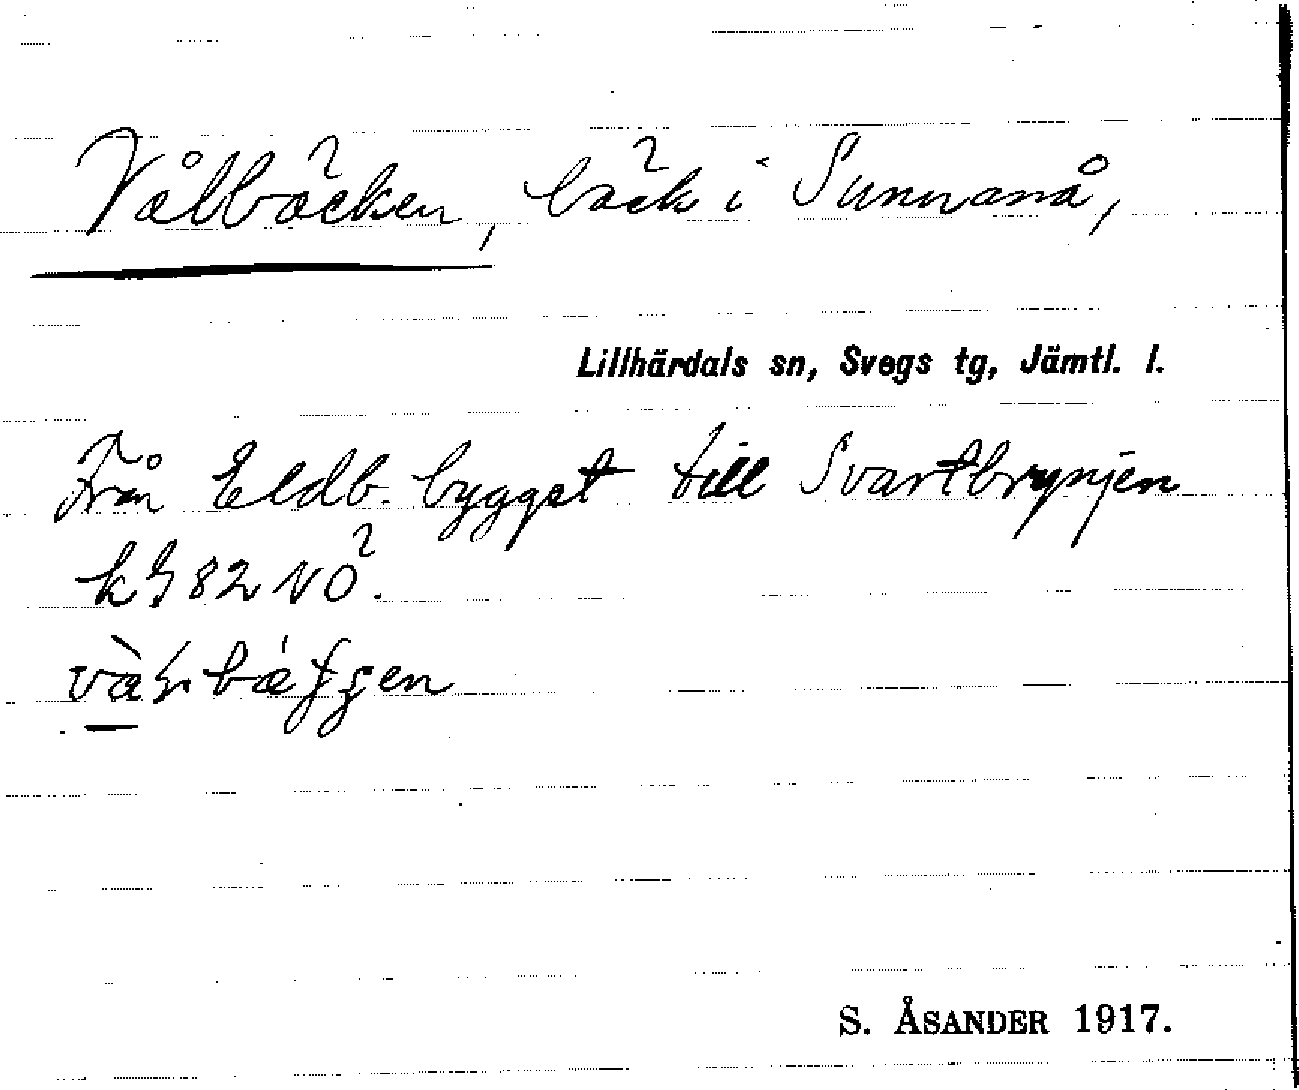 Vålbäcken, bäck i Sunnanå,
Lillhärdals sn, Svegs tg, Jämtl. l.
Från Eldb. bygget till Svartbrynjen
82 NÖ.
S. ÅSANDER 1917.